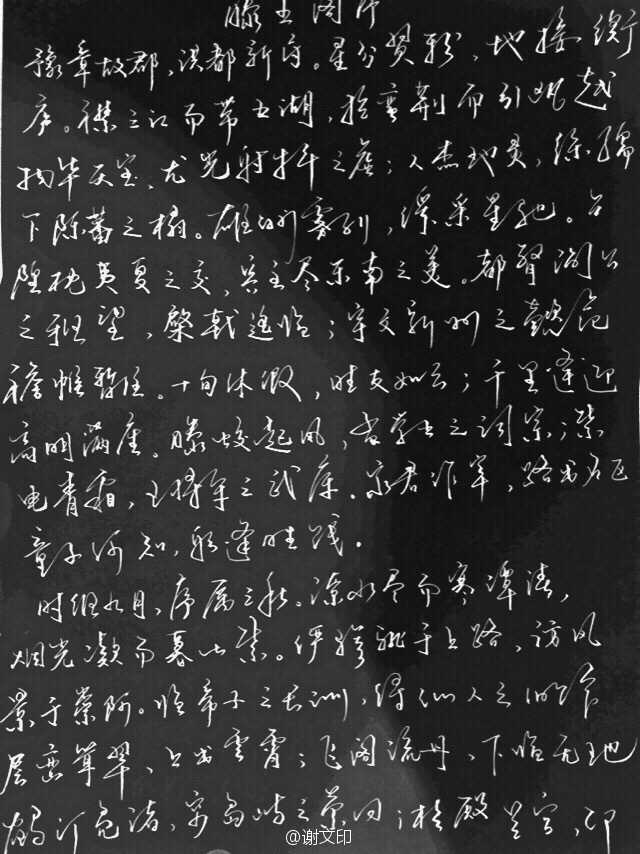 滕王阁序
豫章故郡，洪都新府。星分翼轸，地接衡
庐。襟三江而带五湖，控蛮荆而引瓯越
物华天宝，龙光射牛斗之墟；人杰地灵，徐孺
下陈蕃之榻。雄州雾列，俊采星驰。台
隍枕夷夏之交，宾主尽东南之美。都督阎公
之雅望，棨戟遥临；宇文新州之懿范
襜帷暂驻。十旬休假，胜友如云；千里逢迎
高朋满座。腾蛟起凤，孟学士之词宗；紫
电青霜，王将军之武库。家君作宰，路出名区
童子何知，躬逢胜饯。
时维九月，序属三秋。潦水尽而寒潭清，
烟光凝而暮山紫。俨骖騑于上路，访风
景于崇阿。临帝子之长洲，得仙人之旧馆
层峦耸翠，上出重霄；飞阁流丹，下临无地
鹤汀凫渚，穷岛屿之萦回；桂殿兰宫，即
@谢文印